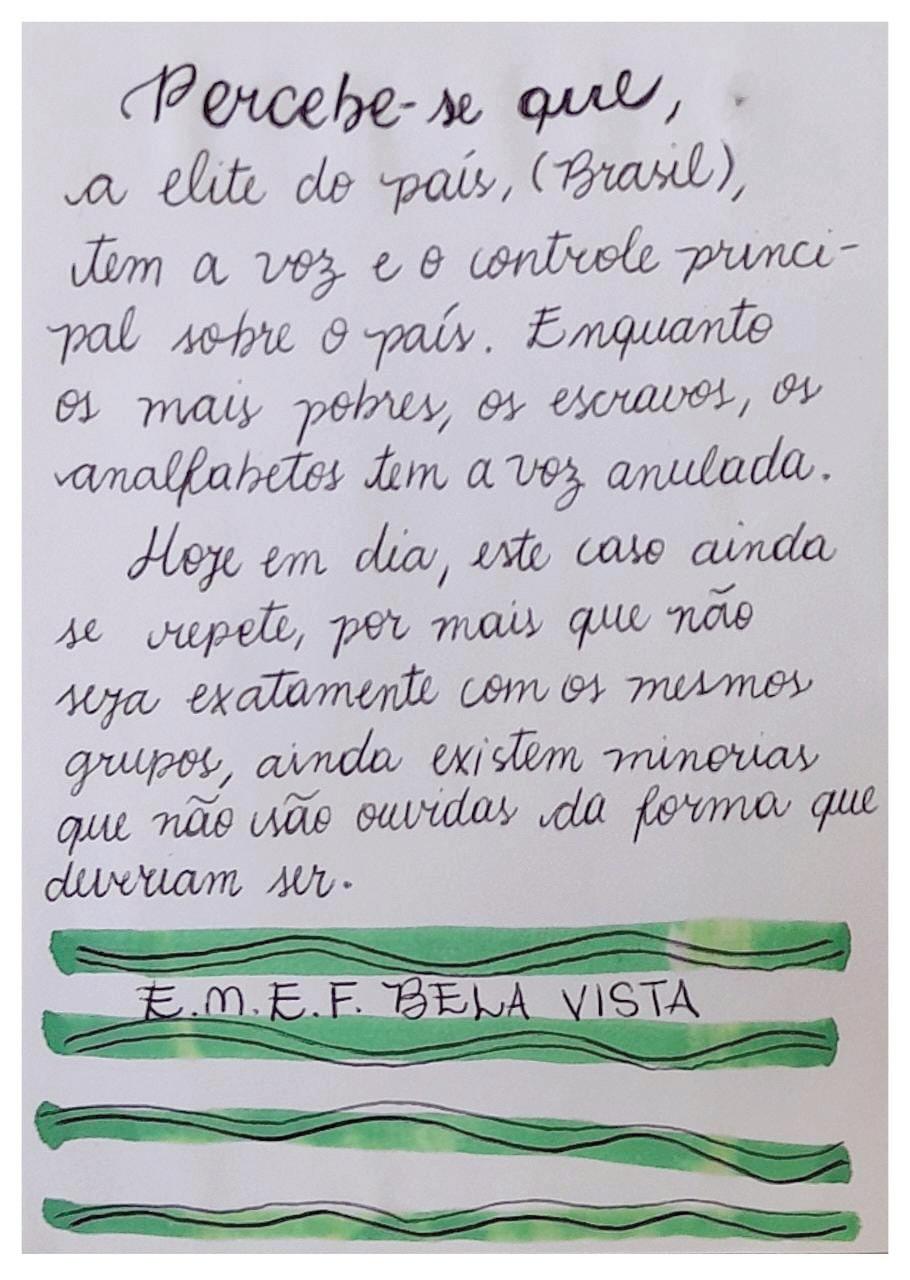 Percebe-se que,
a elite do país, (Brasil),
tem a voz e o controle princi-
pal sobre o país. Enquanto
os mais pobres, os escravos, os
analfabetos tem a voz anulada.
Hoje em dia, este caso ainda
se repete, por mais que não
seja exatamente com os mesmos
grupos, ainda existem minorias
que não são ouvidas da forma que
deveriam ser.
E.M.E.F. BELA VISTA